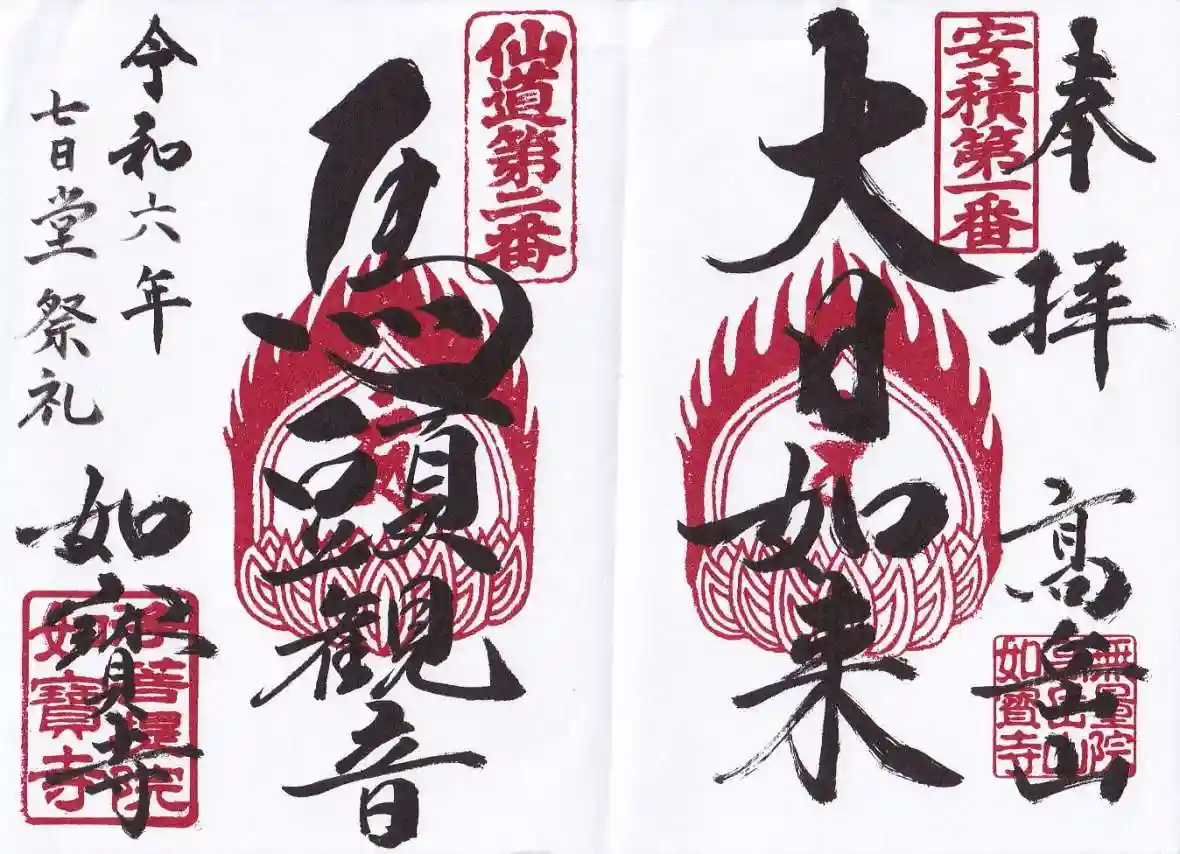 奉拝
安積第一番
大日如来
高岳山
無量院
高岳山
如寳寺
仙道第二番
馬頭観音
令和六年
七日堂祭礼
如寳寺
如寳寺